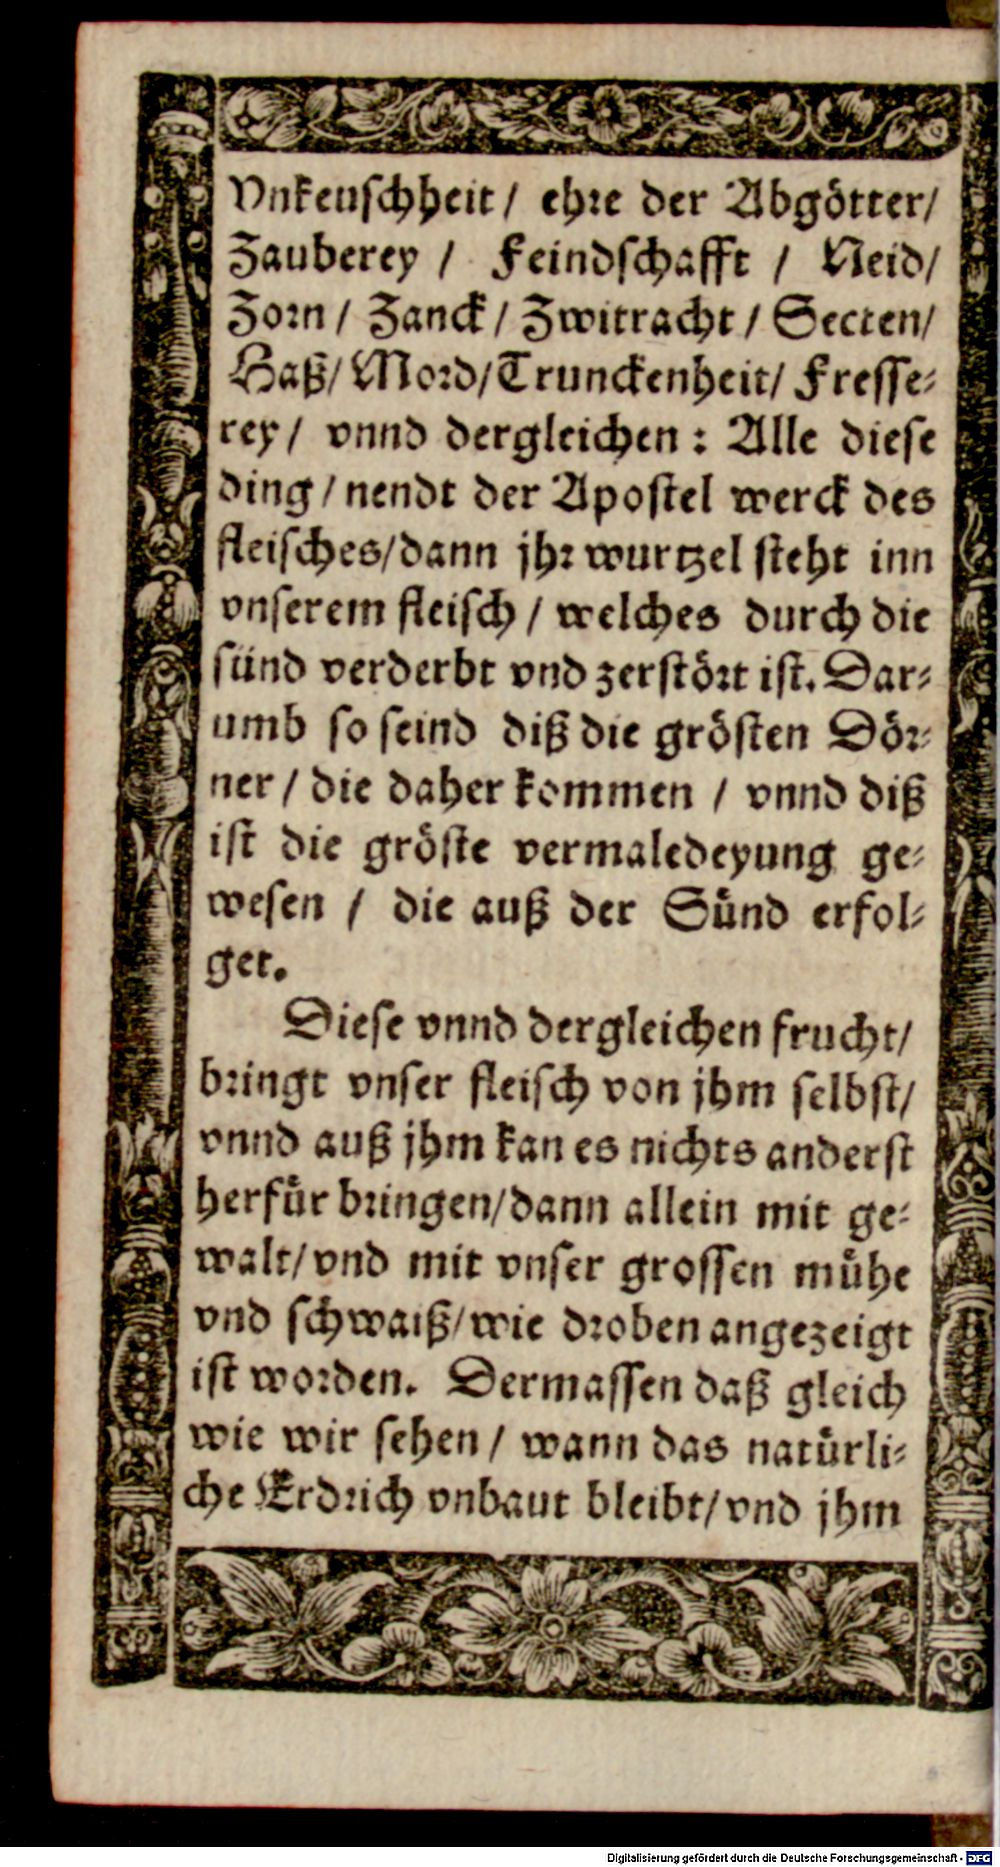 Vnkeuschheit / ehre der Abgötter/
Zauberey / Feindschafft / Neid/
Zorn / Zanck / Zwitracht / Secten/
Haß/ Mord/ Trunckenheit/ Fresse-
rey/ vnnd dergleichen: Alle diese
ding / nendt der Apostel werck des
fleisches/dann jhr wurtzel steht inn
vnserem fleisch / welches durch die
sünd verderbt vnd zerstört ist. Dar-
umb so seind diß die grösten Dör-
ner / die daher kommen / vnnd diß
ist die gröste vermaledeyung ge-
wesen / die auß der Sünd erfol-
get.
Diese vnnd dergleichen frucht/
bringt vnser fleisch von jhm selbst/
vnnd auß jhm kan es nichts anderst
herfür bringen/dann allein mit ge-
walt/vnd mit vnser grossen mühe
vnd schwaiß/wie droben angezeigt
ist worden. Dermassen daß gleich
wie wir sehen / wann das natürli-
che Erdrich vnbaut bleibt/vnd jhm
Digitalisierung gefördert durch die Deutsche Forschungsgemeinschaft - DFG